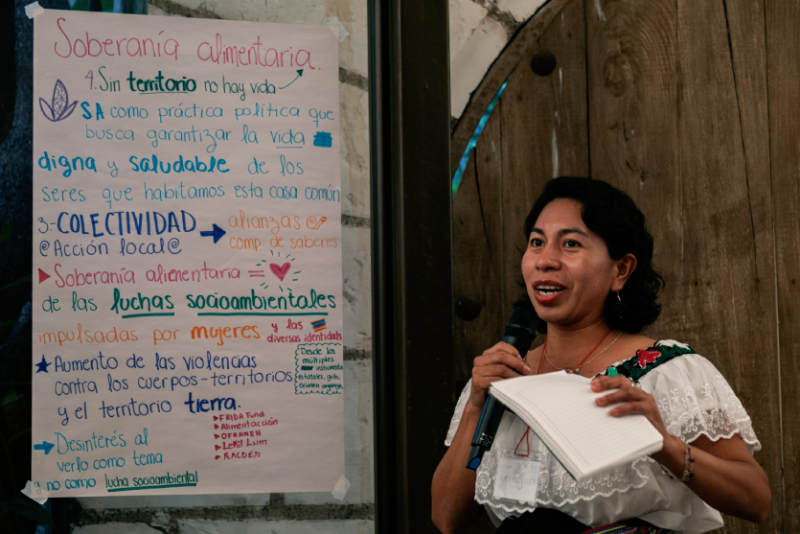 Soberanía alimentaria.
4. Sin territorio no hay vida
SA como práctica política que
busca garantizar la vida
digna y saludable de los
seres que habitamos esta casa común
3- COLECTIVIDAD
@Acción local@
alianzas @
comp de saberes
Soberanía alimentaria =
de las luchas socioambientales
impulsadas por mujeres y las
diversas identidades
Aumento de las violencias
contra los cuerpos-territorios
y el territorio tierra.
Desde los
múltiples
Desinterés al
verlo como tema
y no como lucha socioambiental
FRIDA Fund
Alimentacción
OFRANEH